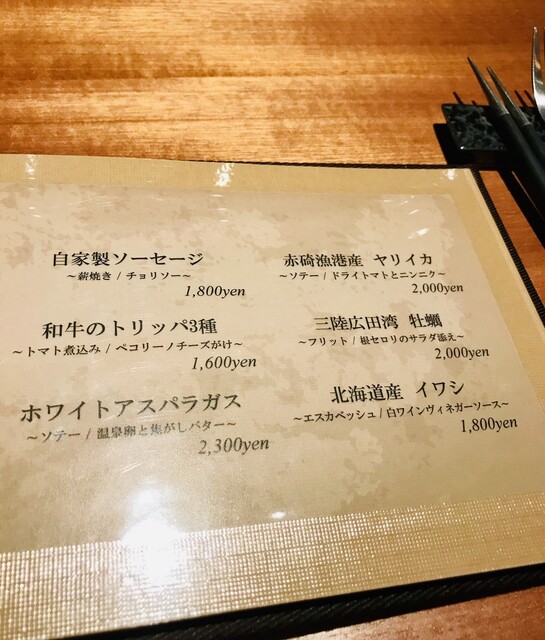 自家製ソーセージ
～薪焼き / チョリソー～
1,800yen
和牛のトリッパ3種
～トマト煮込み / ペコリーノチーズがけ～
1,600yen
ホワイトアスパラガス
～ソテー / 温泉卵と焦がしバター～
2,300yen
赤碕漁港産 ヤリイカ
～ソテー / ドライトマトとニンニク～
2,000yen
三陸広田湾 牡蠣
～フリット / 根セロリのサラダ添え～
2,000yen
北海道産 イワシ
～エスカベッシュ / 白ワインヴィネガーソース～
1,800yen